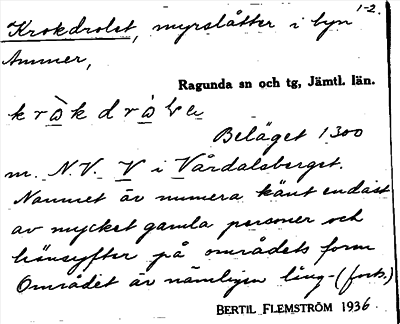 1-2.
Krokdrolet, myrslåtter i byn
Ammer,
Ragunda sn och tg, Jämtl. län.
Beläget 1300
m. N.V. V i Vårdalsberget.
Namnet är numera känt endast
av mycket gamla personer och
hänsyfter på områdets form
Området är nämligen lång- (forts.)
BERTIL FLEMSTRÖM 1936.